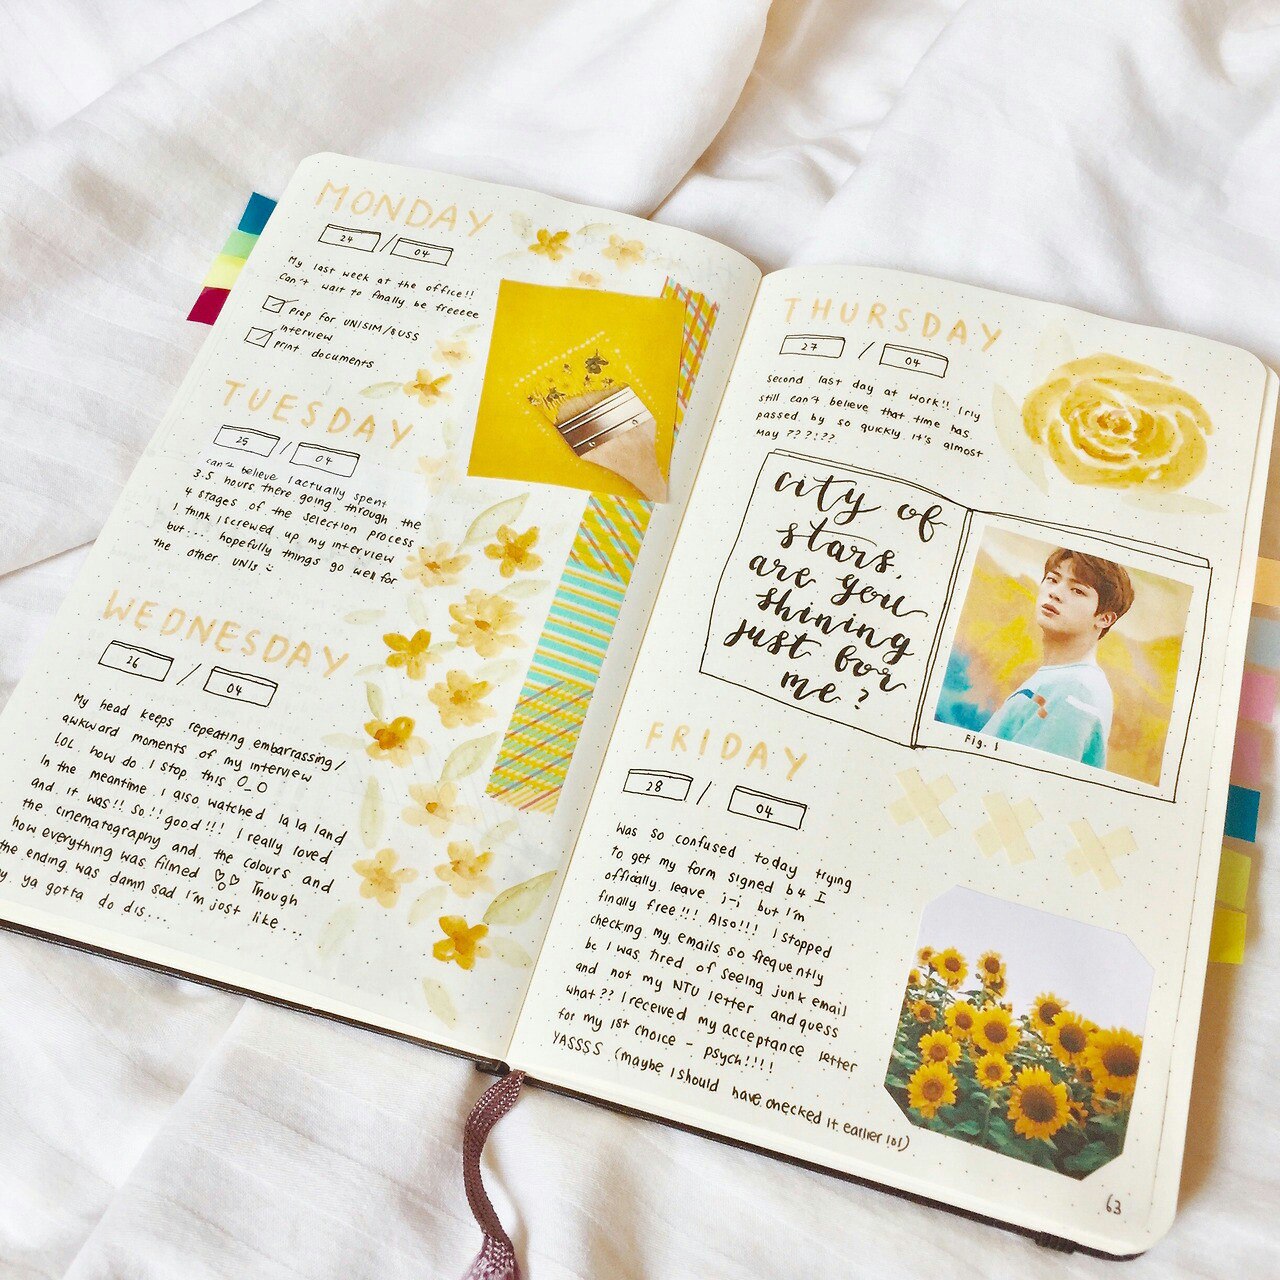 MONDAY
24 / 04
My last week at the office!!
Can't wait to finally be freeeee
prep for UNISIM/SUSS
interview
print documents
TUESDAY
25 / 04
can't believe I actually spent
3.5 hours there going through the
4 stages of the selection process
I think I screwed up my interview
but... hopefully things go well for
the other UNIs
WEDNESDAY
26 / 04
My head keeps repeating embarrassing/
awkward moments of my interview
LOL how do I stop this O_O
In the meantime I also watched la la land
and it was!! So!! good!!! I really loved
the cinematography and the colours and
how everything was filmed ♡♡♡ Though
the ending was damn sad I'm just like...
ya gotta do dis...
THURSDAY
27 / 04
Second last day at work!! I rly
still can't believe that time has
passed by so quickly it's almost
May ??!??
city of
stars,
are you
shining
just for
me?
Fig. 1
FRIDAY
28 / 04
Was so confused today trying
to get my form signed b4 I
officially leave ;-; but I'm
finally free!!! Also!!! I stopped
checking my emails so frequently
bc I was tired of seeing junk email
and not my NTU letter and guess
what?? I received my acceptance letter
for my 1st choice - psych!!!!
YASSSS (maybe I should have checked it earlier lol)
63